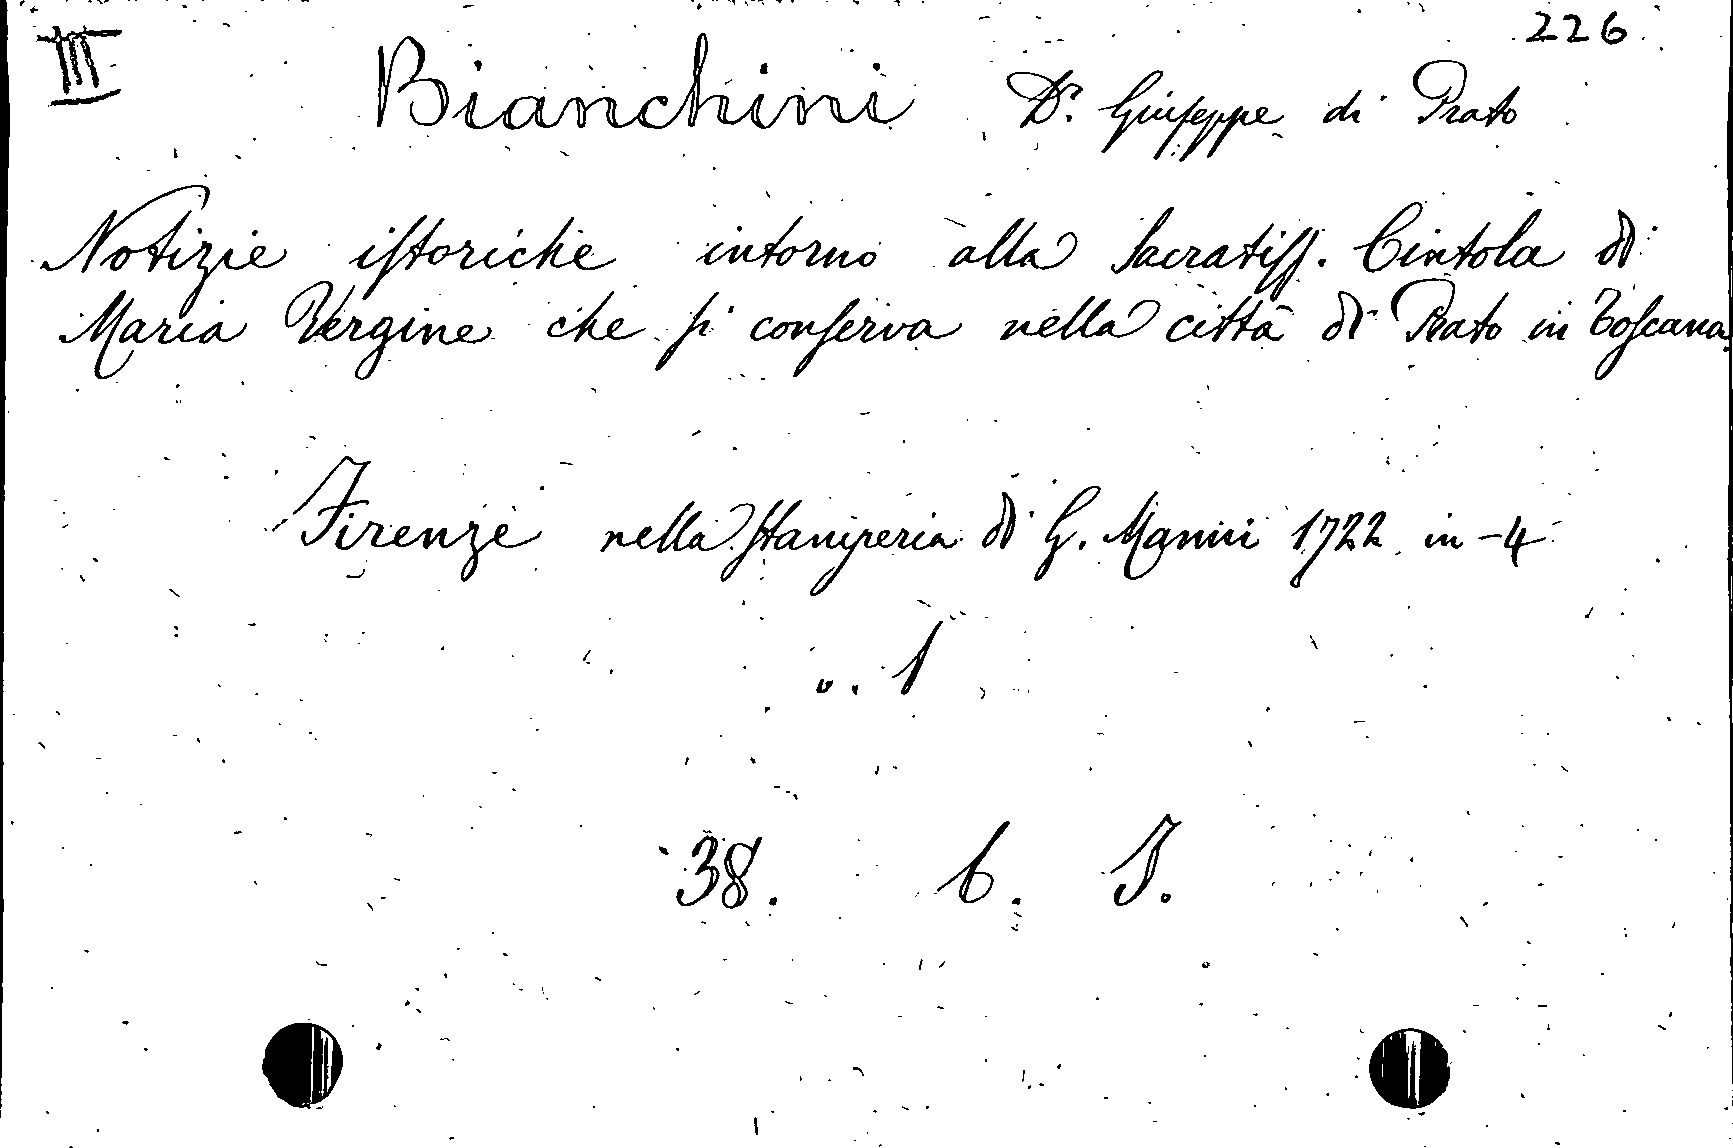 III
226
Bianchini Dr. Giuseppe di Prato
Notizie istoriche intorno alla Sacratiss. Cintola di
Maria Vergine che si conserva nella città di Prato in Toscana
Firenze nella stamperia di G. Manni 1722 in-4
v. 1
38. 6. I.